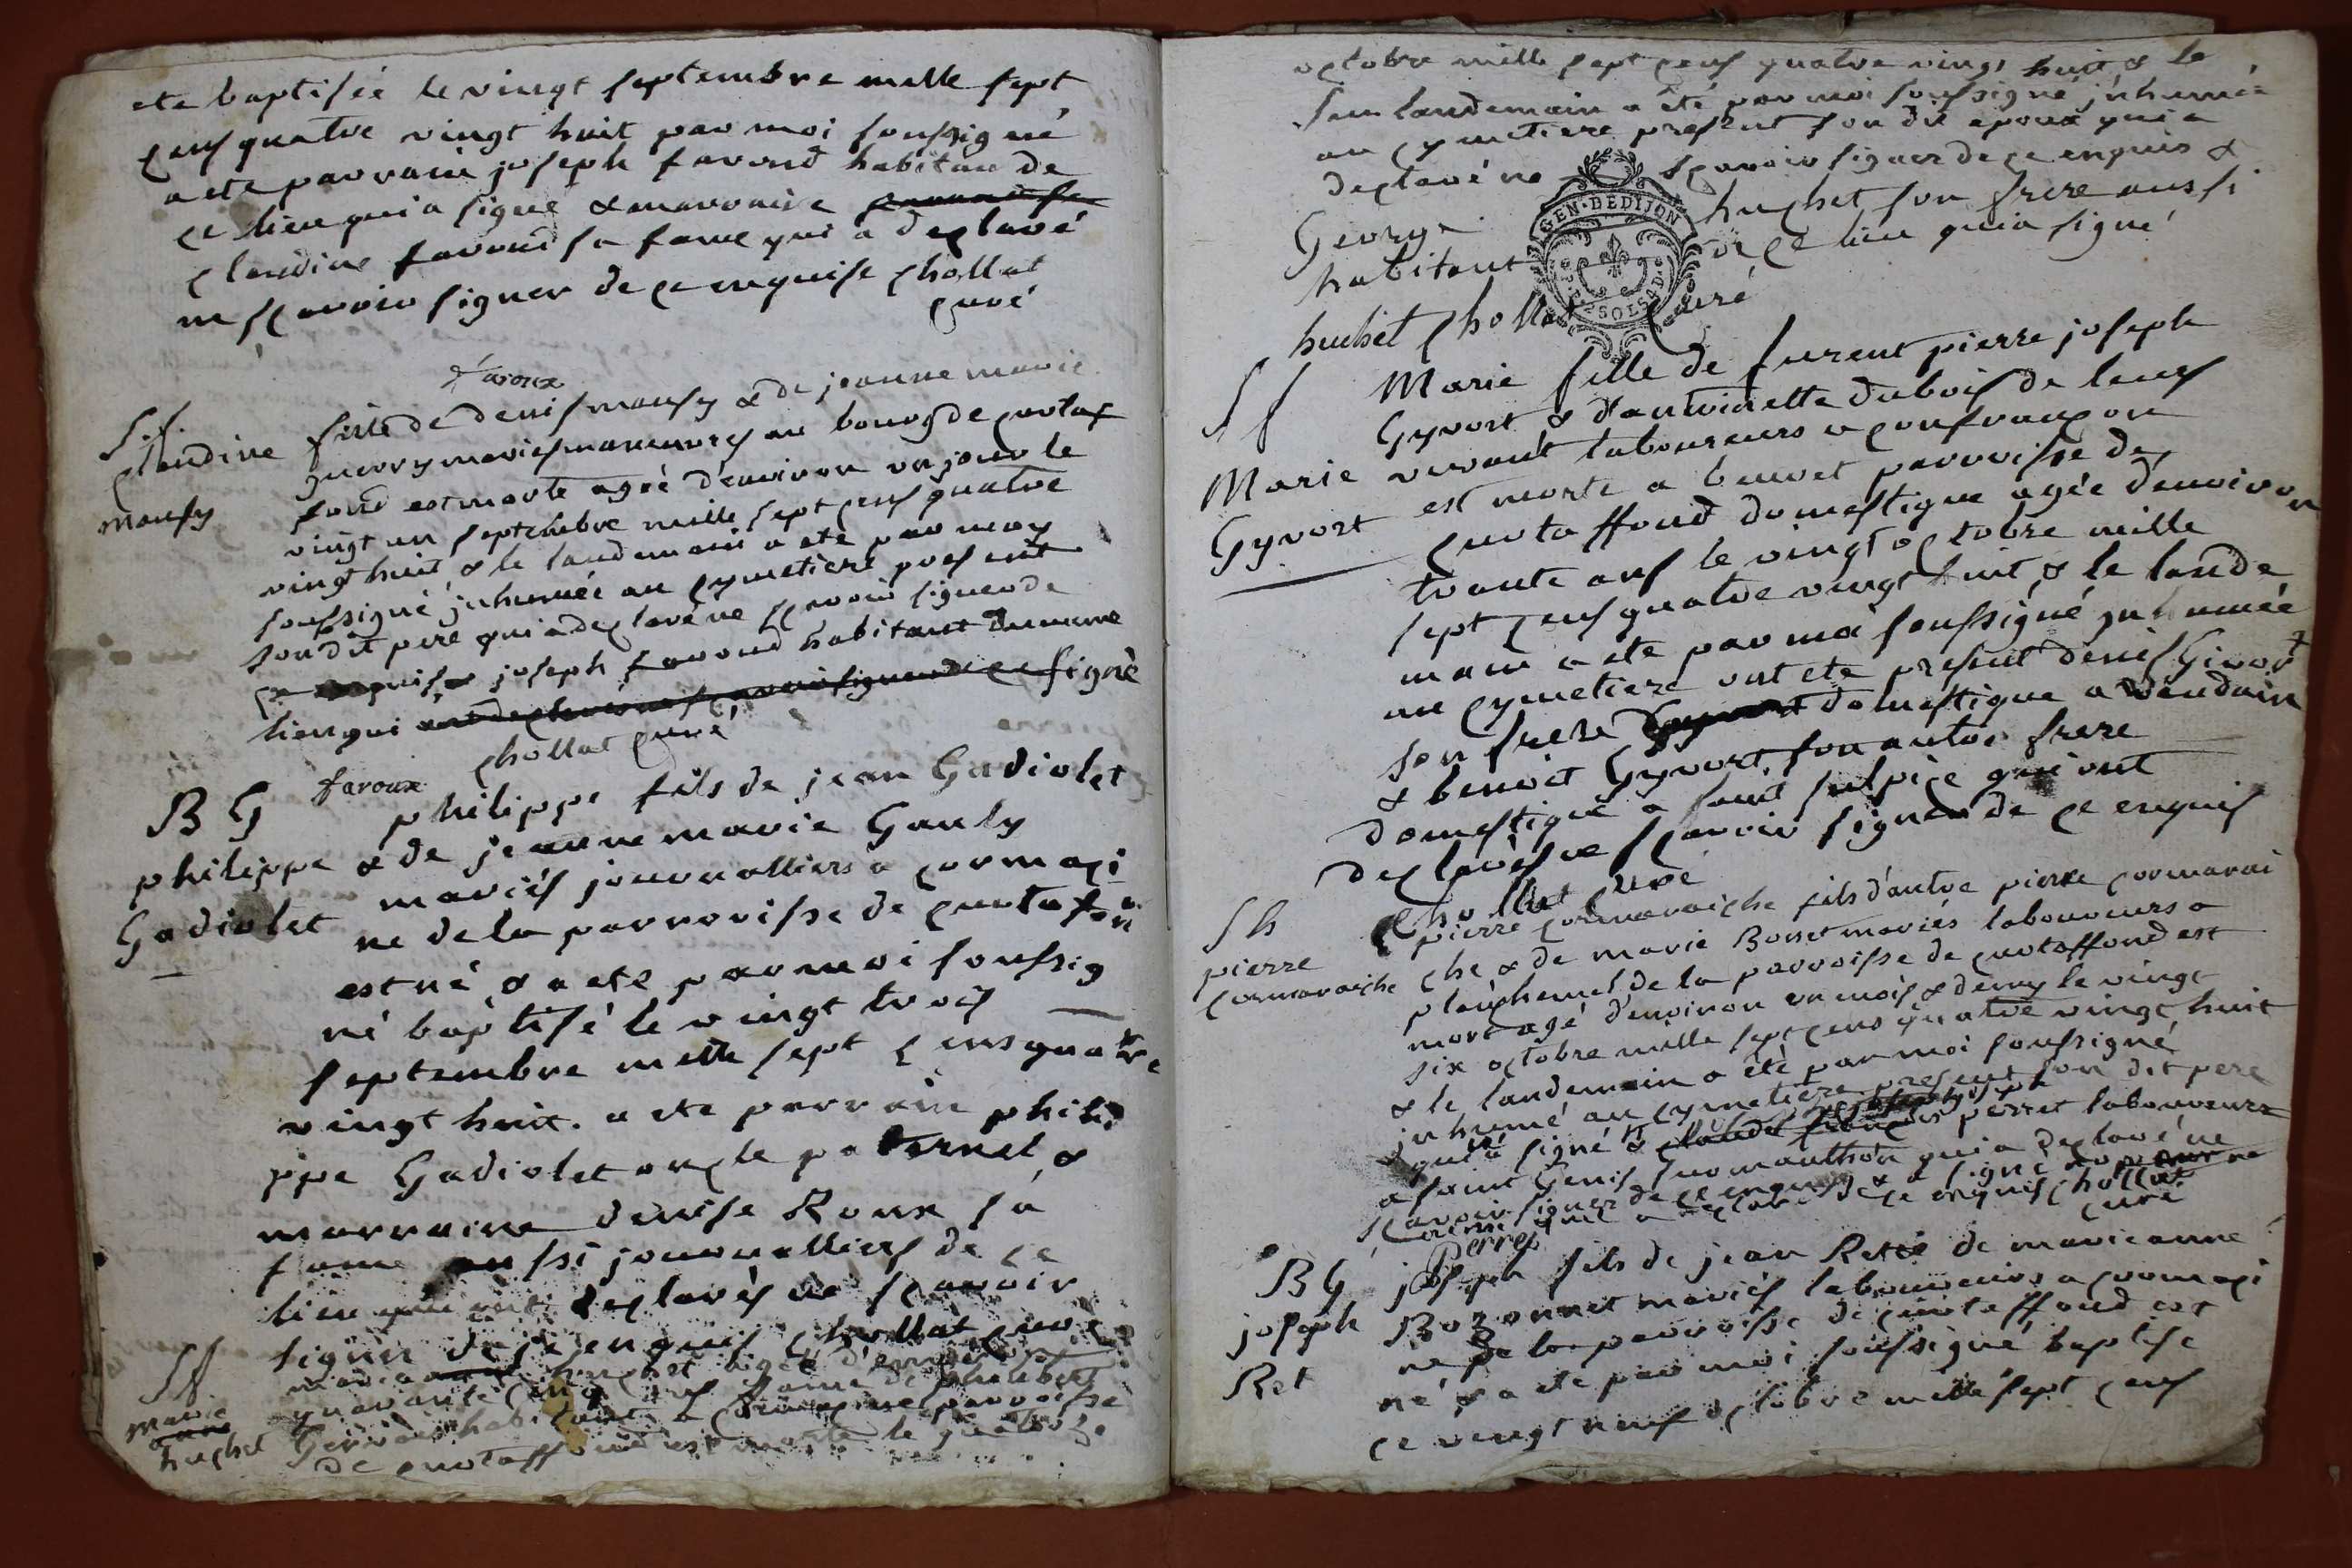 ete baptisée le vingt septembre mille sept
cens quatre vingt huit par moi soussigné
a ete parrain joseph favoud habitan de
ce lieu qui a signé & marraine
claudine favoud sa fame qui a declaré
ne scavoir signer de ce enquise chollat
curé
favoux
S f
Claudine
monssy
fille de denis monssy & de jeanne marie
guerry mariés manuvres au bourg de curtaf
fond est morte agée d'environ un jour le
vingt un septembre mille sept cens quatre
vingt huit & le landemain a ete par moy
soussigné inhumée au cymetiere present
son dit pere qui a declaré ne scavoir signer de
ce enquis & joseph favoud habitant du meme
lieu qui signé
chollat curé
favoux
B G
philippe
Gadiolet
philippe fils de jean Gadiolet
& de jeanne marie Gauly
mariés journalliers a cormaci
ne de la parroisse de curtafon
est né & a ete par moi soussig
né baptisé le vingt trois
septembre mille sept cens quatre
vingt huit. a ete parrain phili
ppe Gadiolet oncle paternel &
marraine denise Roux sa
fame aussi journalliers de ce
lieu qui ont declarés ne scavoir
signer de ce enquis chollat curé
S f
marie
huchet
marie huchet agée d'environ
quarante cinq ans fame de philibert
Gervais habitant a cormacine parroisse
de curtaffond est morte le quatorze
octobre mille sept cens quatre vingt huit & le
landemain a été par moi soussigné inhumée
au cymetiere present son dit epoux qui a
declaré ne scavoir signer de ce enquis &
George huchet son frere aussi
habitant de ce lieu qui a signé
huchet chollat curé
GEN · DE DIJON
SOLS 4 D
S f
Marie
Gyvort
Marie fille de furent pierre joseph
Gyvort & d'antoinette dubois de leurs
vivant laboureurs a confrançon
est morte a beuvet parroisse de
curtaffond domestique agée d'environ
trante ans le vingt octobre mille
sept cens quatre vingt huit & le lande
main a ete par moi soussigné inhumée
au cymetiere ont ete present denis Givort
son frere domestique a vandain
& benoit Gyvort son autre frere
domestique a saint sulpice qui ont
declarés ne scavoir signer de ce enquis
chollat curé
S h
pierre
cormaraiche
pierre cormaraiche fils d'autre pierre cormarai
che & de marie Bonet mariés laboureurs a
plauchenel de la parroisse de curtaffond est
mort agé d'environ un mois & demy le vingt
six octobre mille sept cens quatre vingt huit
& le landemain a été par moi soussigné
inhumé au cymetiere present son dit pere
qui a signé & perret laboureurs
a saint Genis qui a declaré ne
scavoir signer de ce enquis &
de ce enquis chollat
curé
Perret
B G
joseph
Ret
joseph fils de jean Ret & de marie anne
Bozonnet mariés laboureurs a cormaci
ne de la parroisse de curtaffond est
né & a ete par moi soussigné baptise
ce vingt neuf octobre mille sept cens